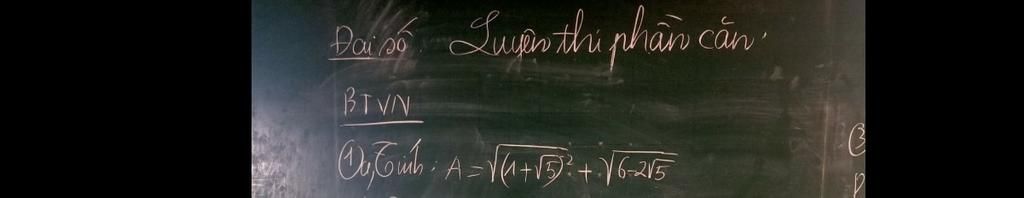 Đại số. Luyện thi phần căn.
BTVN
① a, Tính: A = √(1+√5)² + √6-2√5
③
P